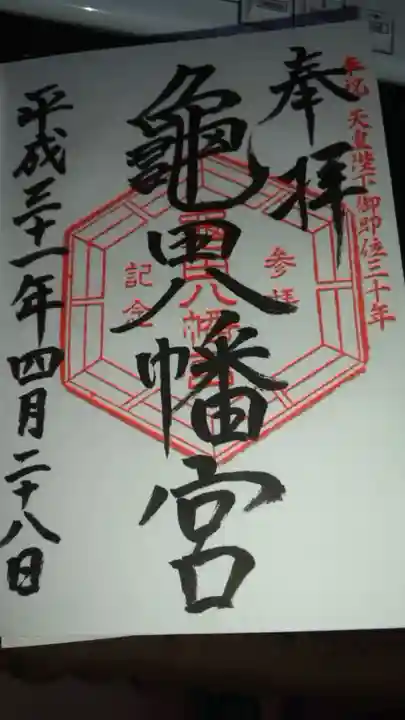 奉祝 天皇陛下御即位三十年
奉拝
亀田八幡宮
参拝
亀田八幡宮
記念
平成三十一年四月二十八日